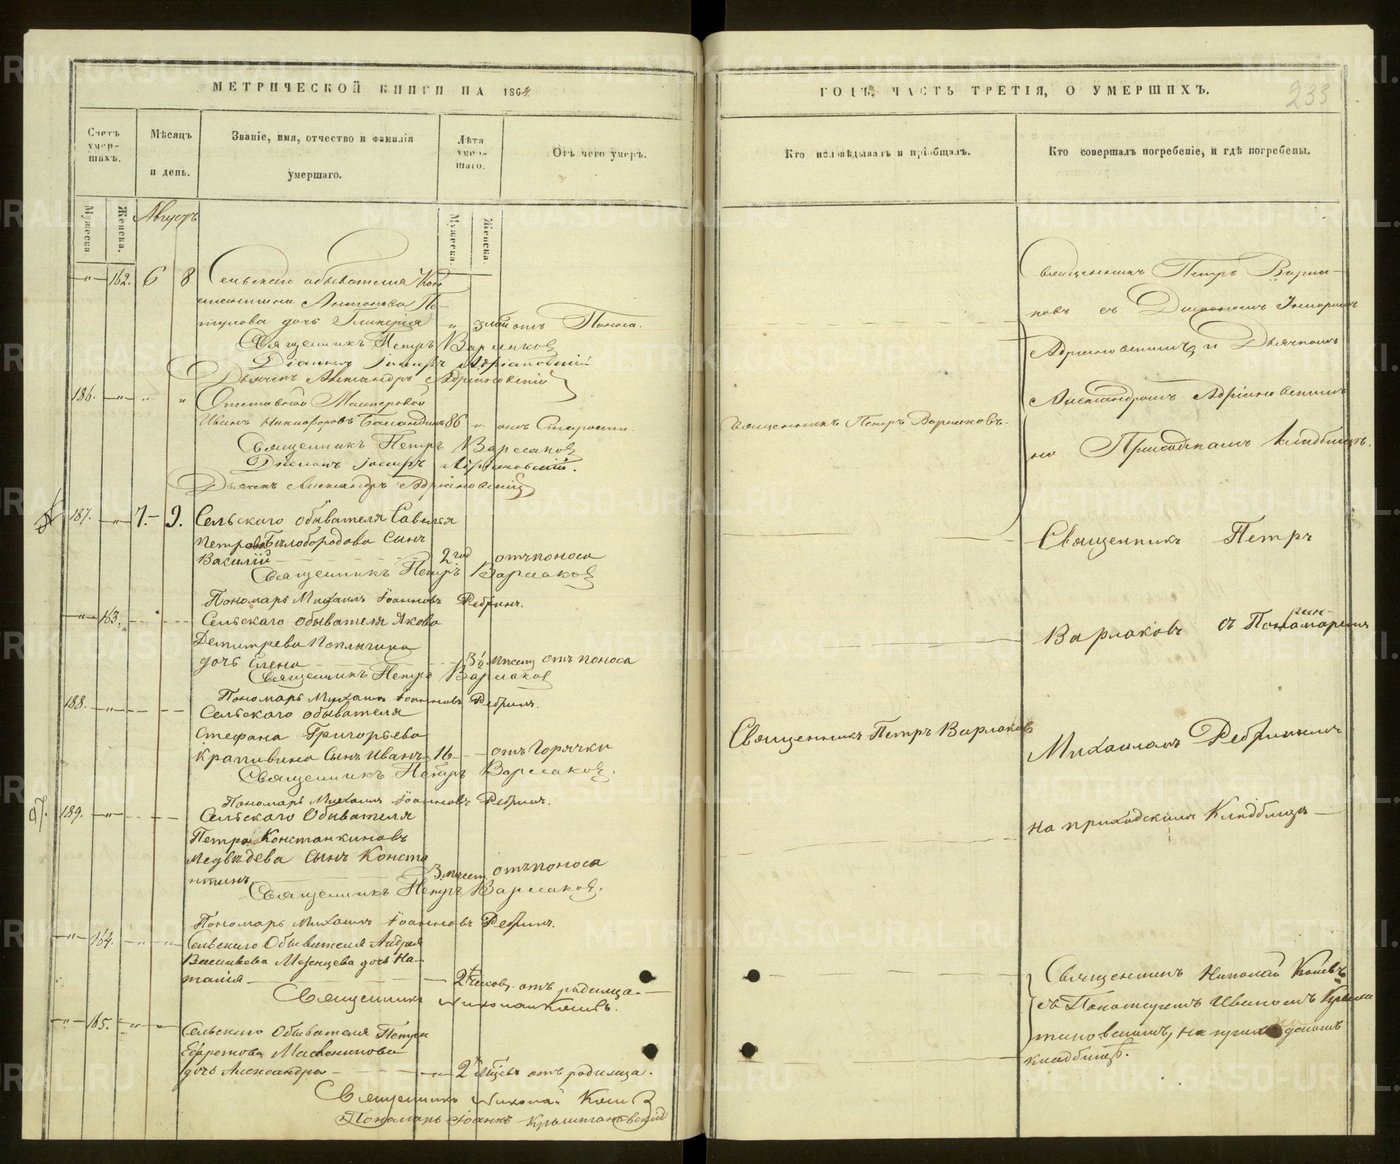 МЕТРИЧЕСКОЙ КНИГИ НА 1864
Счетъ умер-шихъ.
Мѣсяцъ и день.
Званіе, имя, отчество и фамилія умершаго.
Лѣта умер-шаго.
Отъ чего умеръ.
Мужеска
Женска.
Мужеска.
Женска.
Августъ
162. 6 8 Сельскаго обывателя Кон
стантина Антонова
дочь Гликерія отъ Поноса.
Священникъ Петръ Варлаковъ
Діаконъ Іосифъ Адріановскій
Дьячекъ Александръ Адріановскій
186. Отставной Мастеровой
Иванъ Никифоровъ 86 отъ Старости.
Священникъ Петръ Варлаковъ
Діаконъ Іосифъ Адріановскій.
Дьячекъ Александръ Адріановскій
187. 7. 9. Сельскаго обывателя Савелія
Петрова Бѣлобородова сынъ
Василій 2 год отъ поноса
Священникъ Петръ Варлаковъ
Пономарь Михаилъ Іоанновъ Ребринъ.
163. Сельскаго обывателя Якова
Димитрева
дочь Елена 3½ месяц отъ поноса
Священникъ Петръ Варлаковъ
Пономарь Михаилъ Іоанновъ Ребринъ.
188. Сельскаго обывателя
Стефана Григорьева
Крапивина сынъ Иванъ 16 отъ Горячки
Священникъ Петръ Варлаковъ.
Пономарь Михаилъ Іоанновъ Ребринъ.
189. Сельскаго Обывателя
Петра Константинова
Медвѣдева сынъ Конста
нтинъ 3 месяц отъ поноса
Священникъ Петръ Варлаковъ.
Пономарь Михаилъ Іоанновъ Ребринъ.
164. Сельскаго Обывателя Андрея
Васильева дочь На-
талія отъ родимца.
Священникъ Николай
165. Сельскаго Обывателя Петра
Ефремова Масленикова
дочь Александра 2 отъ родимца.
Священникъ Николай
Пономарь Іоаннъ
ГОДЪ, ЧАСТЬ ТРЕТІЯ, О УМЕРШИХЪ.
233
Кто исповѣдывалъ и пріобщалъ.
Кто совершалъ погребеніе, и гдѣ погребены.
Священникъ Петръ Варла-
ковъ съ Діакономъ Іосифомъ
Адріановскимъ и Дьячкомъ
Александромъ Адріановскимъ
Священникъ Петръ Варлаковъ.
на Приходскомъ кладбищѣ.
Священникъ Петръ
Варлаковъ съ Пономаремъ
Священникъ Петръ Варлаковъ
Михаиломъ Ребринымъ
на приходскомъ Кладбищѣ
Священникъ Николай
съ Пономаремъ Иваномъ
на приходскомъ
кладбищѣ.
METRIKI.GASO-URAL.RU